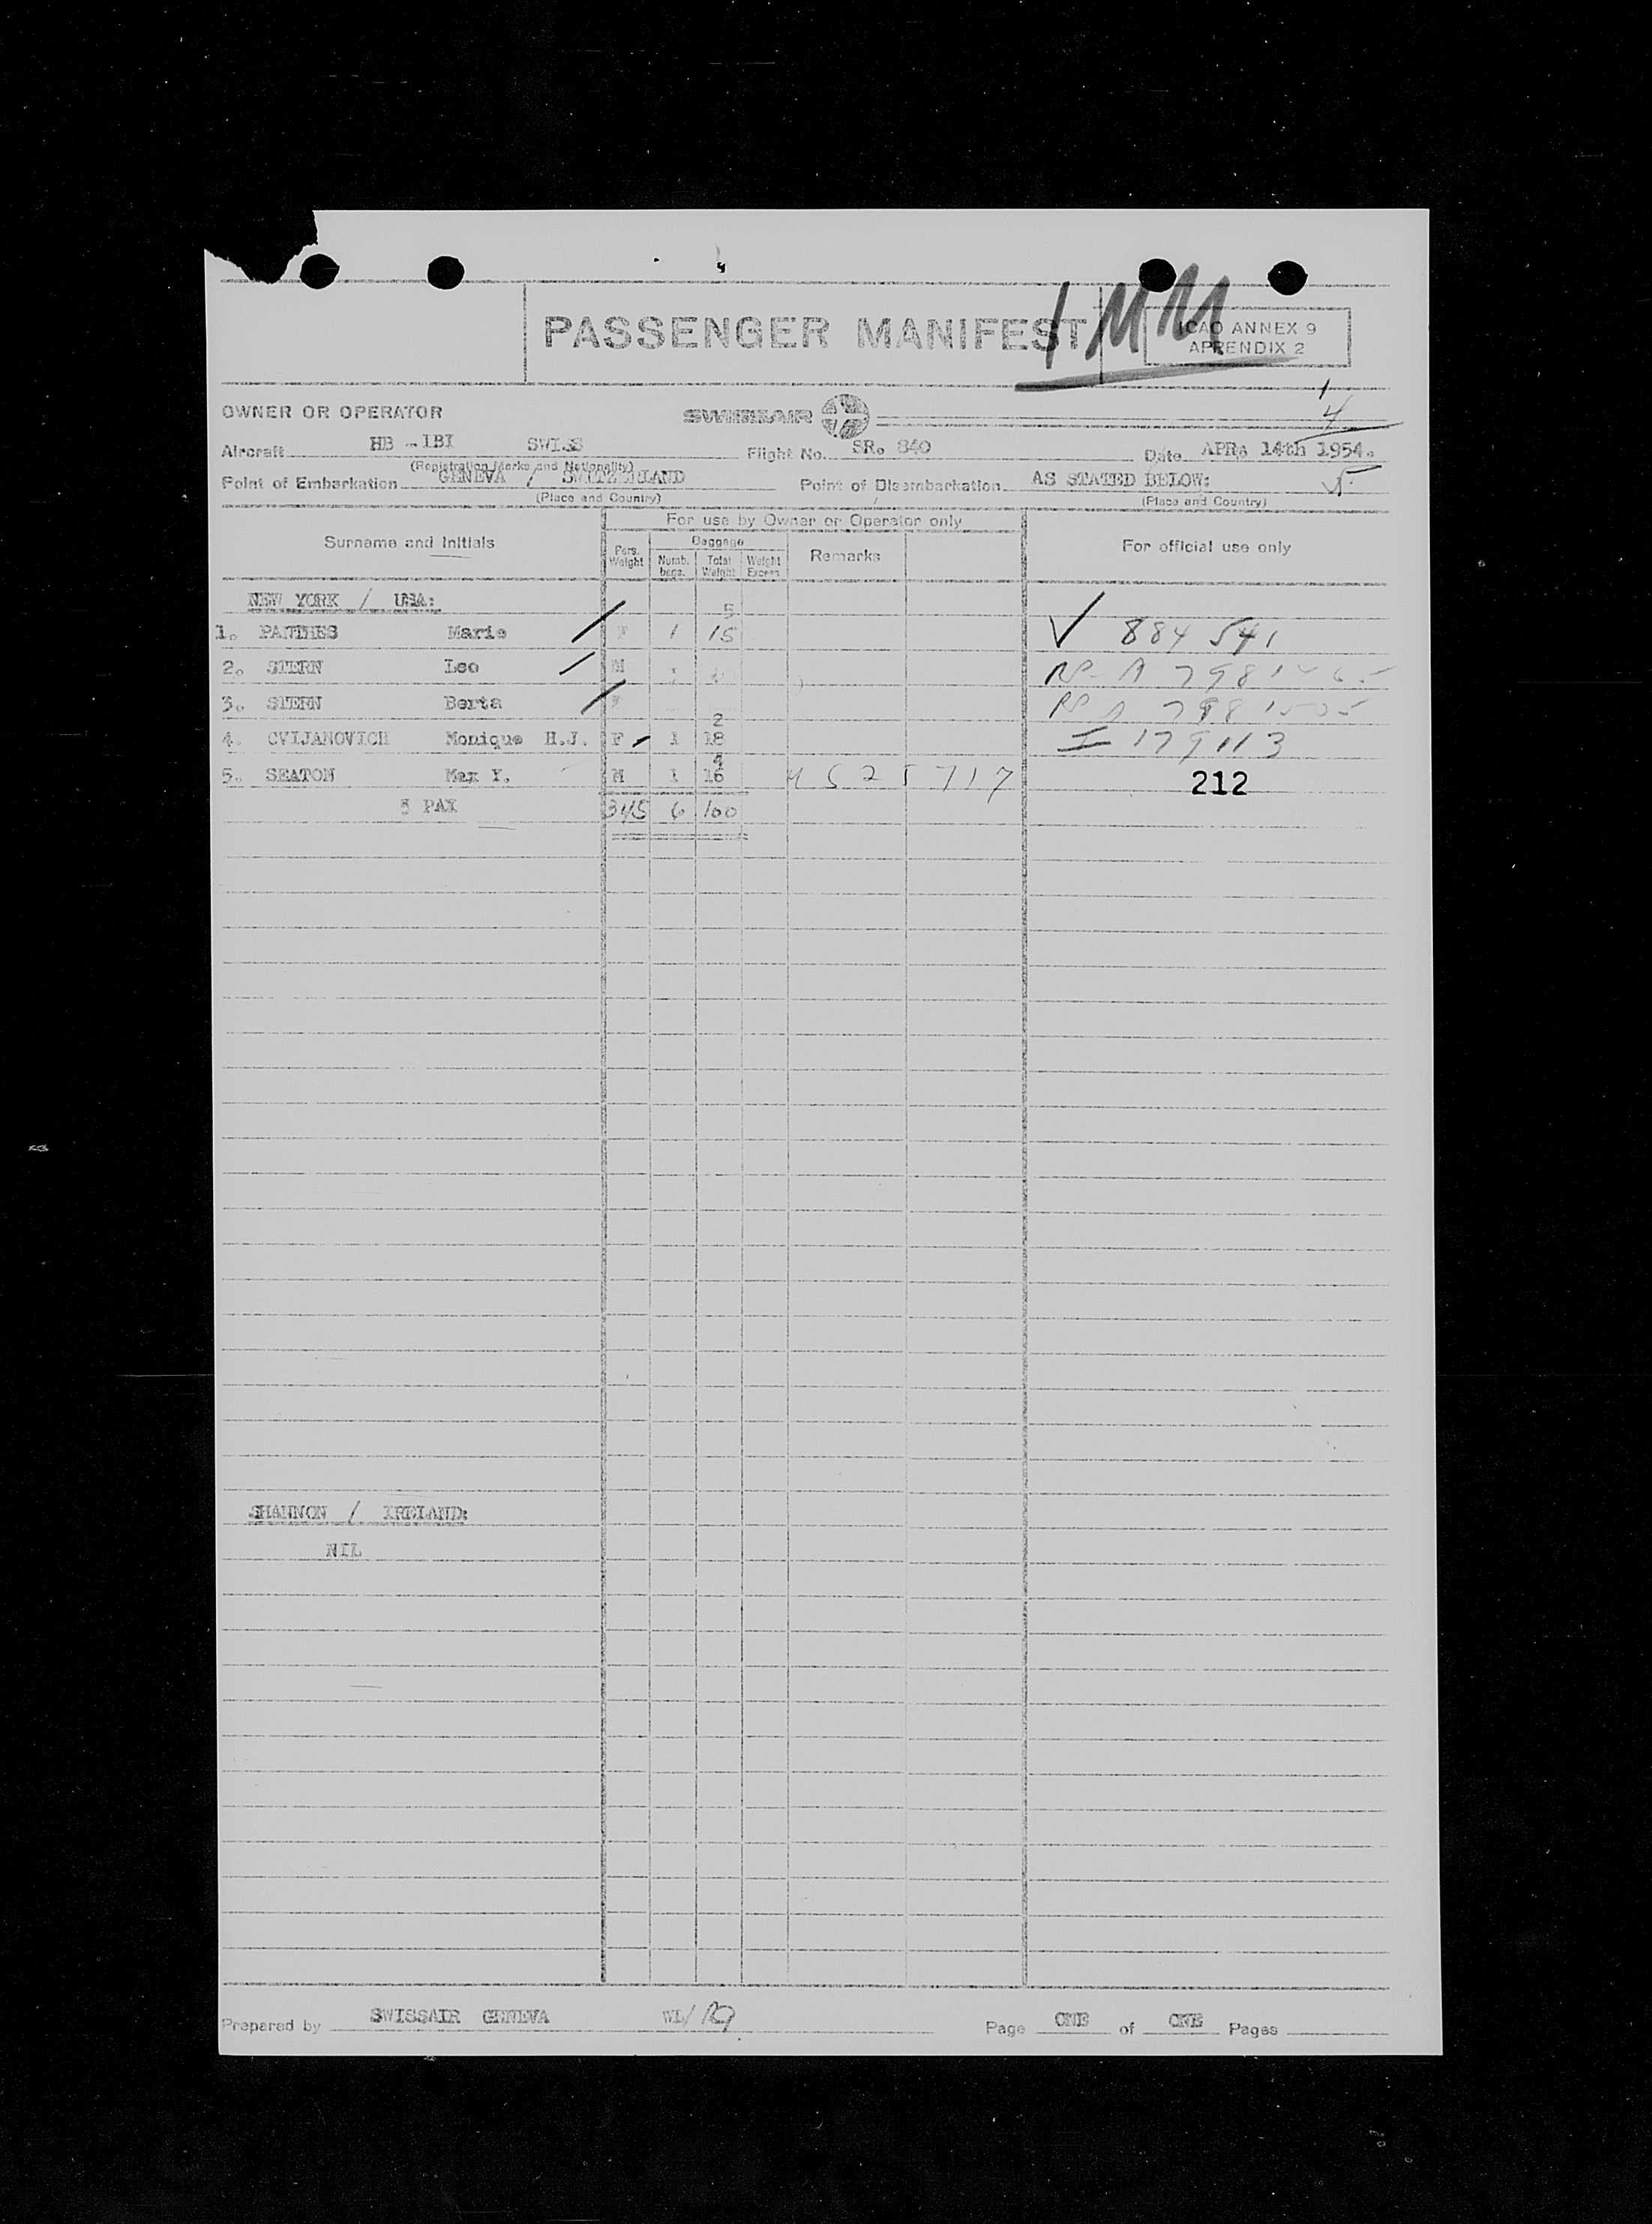 PASSENGER MANIFEST
1 MM
ICAO ANNEX 9
APPENDIX 2
1
4
OWNER OR OPERATOR SWISSAIR
Aircraft HB - IBI SWISS Flight No. SR. 840 Date APR. 14th 1954.
(Registration Marks and Nationality)
Point of Embarkation GENEVA / SWITZERLAND Point of Disembarkation AS STATED BELOW: 5
(Place and Country) (Place and Country)
For use by Owner or Operator only
Surname and Initials Pers. Weight Baggage Numb. bags. Total Weight Weight Excess Remarks For official use only
NEW YORK / USA: 5
1. PANTHES Marie F 1 15 884 541
2. STERN Leo M
3. STERN Berta F
2
4. CVIJANOVICH Monique H.J. F 1 18 I 179113
4
5. SEATON Max Y. M 1 16 212
5 PAX 345 6 100
SHANNON / IRELAND:
NIL
Prepared by SWISSAIR GENEVA WL/ Page ONE of ONE Pages